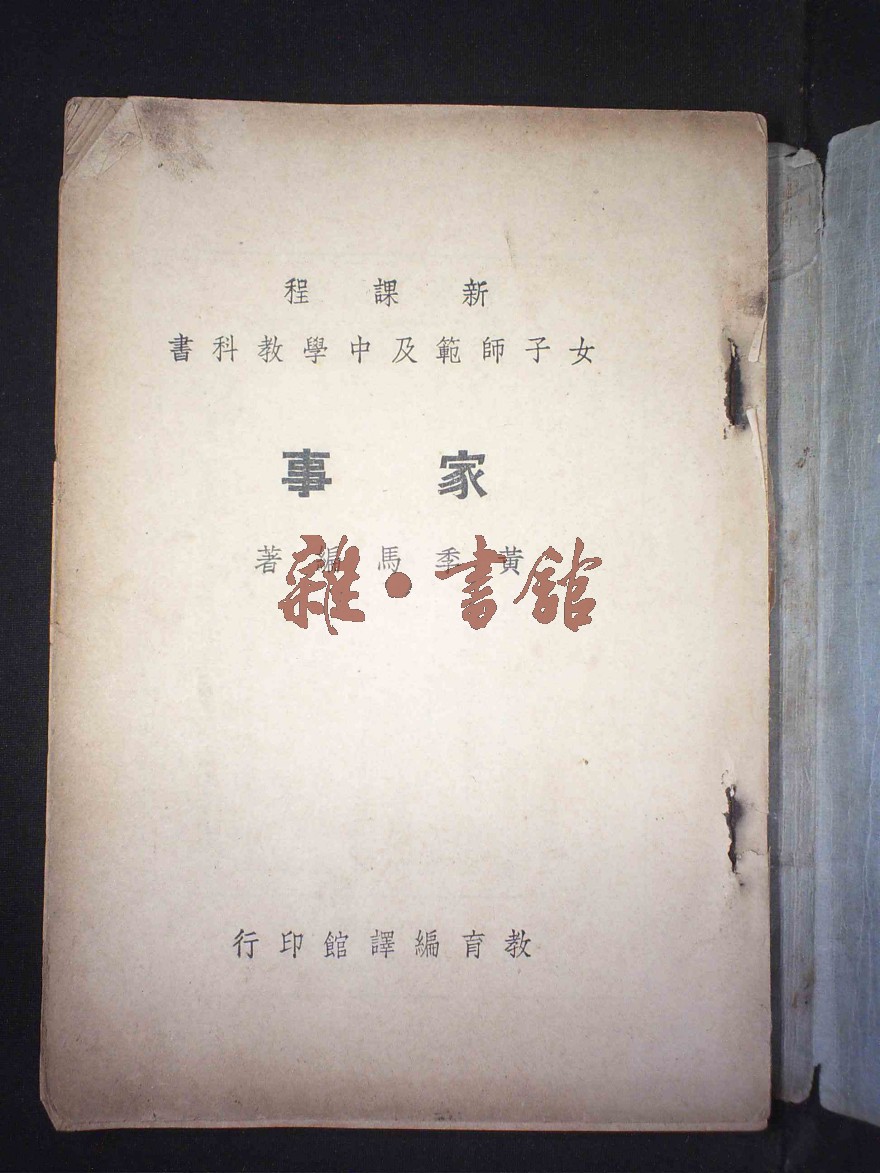 新課程
女子師範及中學教科書
家事
黃季馬編著
雜·書館
教育編譯館印行